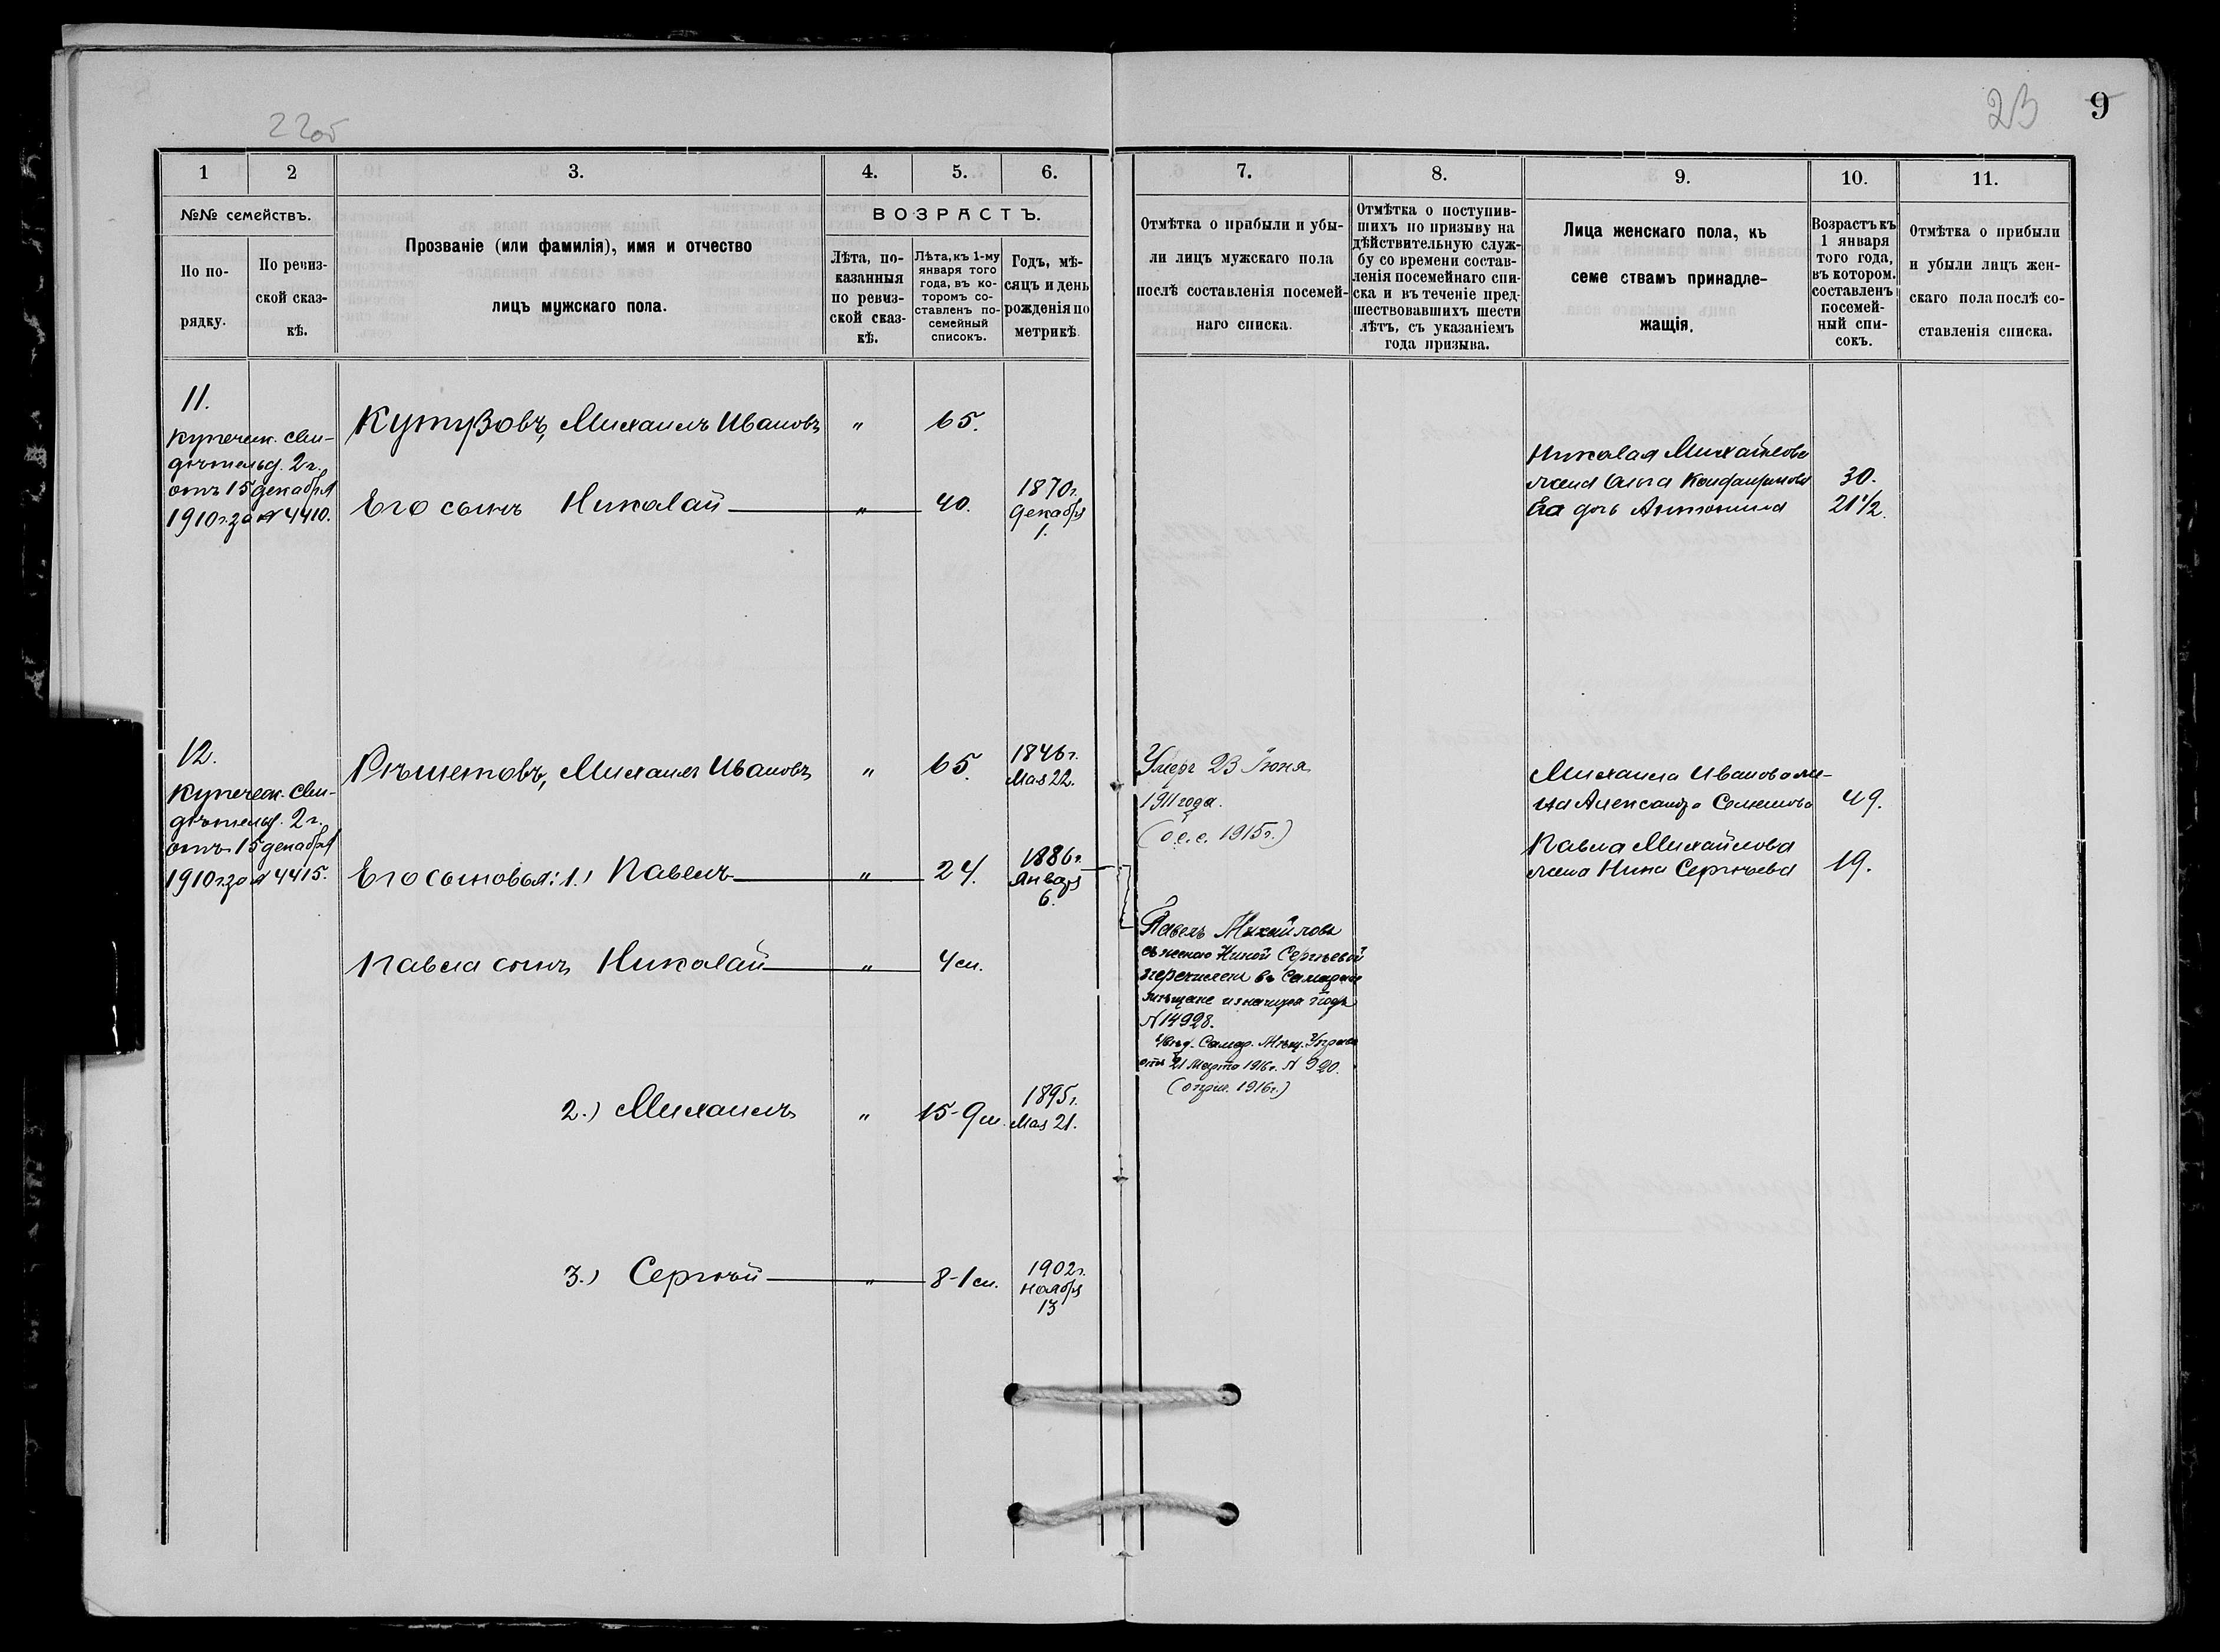 22об
23
9
1
2
3.
4.
5.
6.
№№ семействъ.
По по-
рядку.
По ревиз-
ской сказ-
кѣ.
Прозваніе (или фамилія), имя и отчество
лицъ мужскаго пола.
ВОЗРАСТЪ.
Лѣта, по-
казанныя
по ревиз-
ской сказ-
кѣ.
Лѣта, къ 1-му
января того
года, въ ко-
торомъ со-
ставленъ по-
семейный
списокъ.
Годъ, мѣ-
сяцъ и день
рожденія по
метрикѣ.
7.
8.
9.
10.
11.
Отмѣтка о прибыли и убы-
ли лицъ мужскаго пола
послѣ составленія посемей-
наго списка.
Отмѣтка о поступив-
шихъ по призыву на
дѣйствительную служ-
бу со времени состав-
ленія посемейнаго спи-
ска и въ теченіе пред-
шествовавшихъ шести
лѣтъ, съ указаніемъ
года призыва.
Лица женскаго пола, къ
семе ствамъ принадле-
жащія.
Возрастъ къ
1 января
того года,
въ котором.
составленъ
посемей-
ный спи-
сокъ.
Отмѣтка о прибыли
и убыли лицъ жен-
скаго пола послѣ со-
ставленія списка.
11.
Купеческ. сви-
дѣтельд. 2 г.
отъ 15 декабря
1910 г. за № 4410.
Кутузовъ, Михаилъ Ивановъ " 65.
Его сынъ Николай " 40. 1870 г.
Декабря
1.
Николая Михайлова
жена Ольга
30.
Ея дочь Антонина 21 1/2.
12.
Купеческ. сви-
дѣтельд. 2 г.
отъ 15 декабря
1910 г. за № 4415.
Рѣшетовъ, Михаилъ Ивановъ " 65. 1846 г.
Мая 22.
Умеръ 23 Іюня
1911 года.
(о.с.с. 1915 г.)
Михаила Иванова же-
на Александра Семенова 49.
Его сыновья: 1.) Павелъ " 24. 1886 г.
Января
6.
Павла Михайлова
жена Нина Сергѣева 19.
Павла сынъ Николай " 4 м.
Павелъ Михайловъ
съ женою Ниной Сергѣевой
перечислен въ Самарскіе
мѣщане изъ начала года
№ 14928.
Увѣд. Самар. Мѣщ. Управы
отъ 21 Марта 1916 г. № 920.
(о прич. 1916 г.)
2.) Михаилъ " 15-9 м. 1895 г.
Мая 21.
3.) Сергѣй " 8-1 м. 1902 г.
Ноября
13